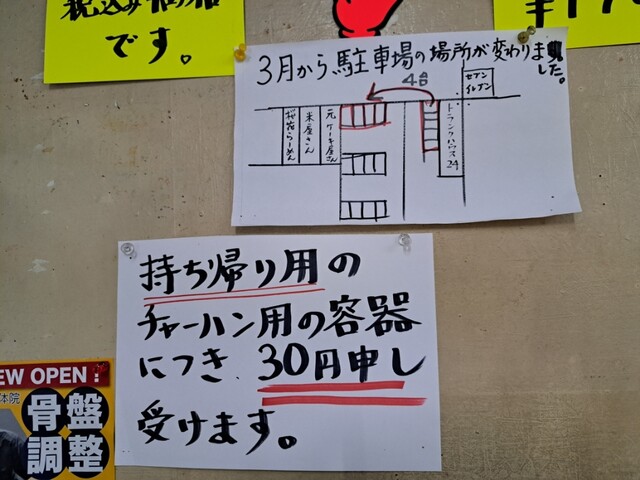 税込み価格
です。
3月から駐車場の場所が変わりました。
4台
セブン
イレブン
元ケーキ屋さん
米屋さん
桜宿らーめん
トランクハウス24
持ち帰り用の
チャーハン用の容器
につき、30円申し
受けます。
NEW OPEN
体院
骨盤
調整